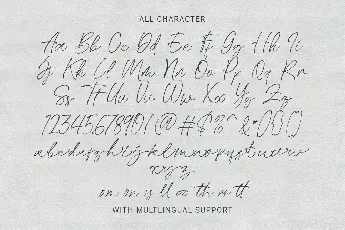 ALL CHARACTER
Aa Bb Cc Dd Ee Ff Gg Hh Ii
Jj Kk Ll Mm Nn Oo Pp Qq Rr
Ss Tt Uu Vv Ww Xx Yy Zz
1234567890!@#$%^&*()
abcdefghijklmnopqrstuvw
xyz
on ll oo th tt
WITH MULTLINGUAL SUPPORT